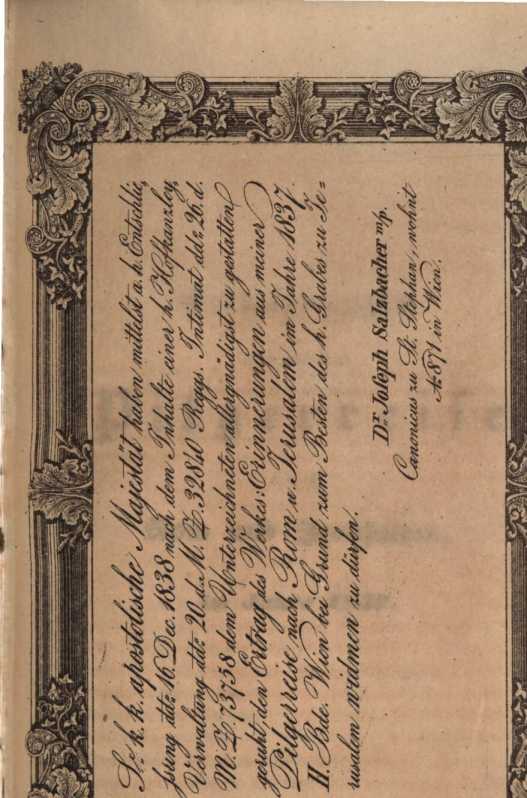 Se. k. k. apostolische Majestät haben mittelst a. h. Entschlie,
ßung ddto 16. Dec. 1838 nach dem Inhalte einer h. Hofkanzley,
Verwaltung ddto 20. d. M. Z. 32840 Reggs. Intimat ddto 26. d.
M. Z. 73758 dem Unterzeichneten allergnädigst zu gestatten
geruht den Ertrag des Werkes: Erinnerungen aus meiner
Pilgerreise nach Rom u. Jerusalem im Jahre 1837.
II. Bde. Wien bei Grund zum Besten des h. Grabes zu Je=
rusalem widmen zu dürfen.
Dr. Joseph Salzbacher m/p.
Canonicus zu St. Stephan, wohnt
№ 871 in Wien.